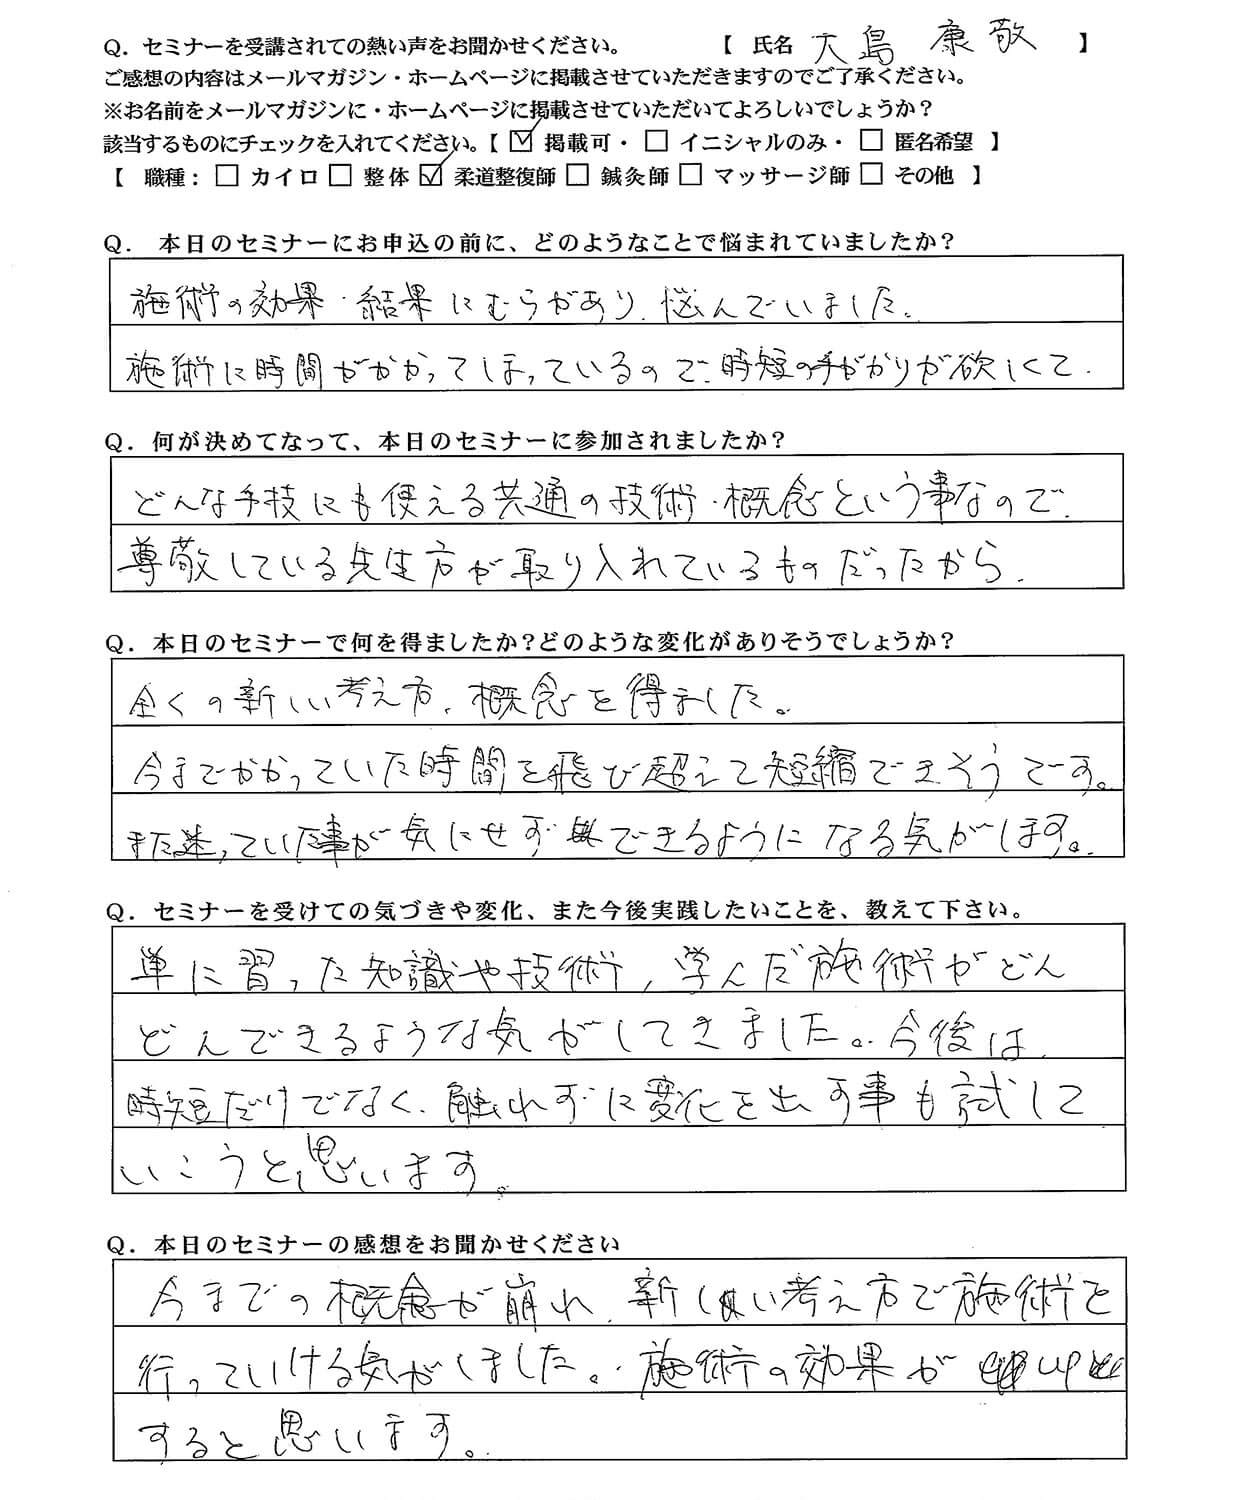 Q. セミナーを受講されての熱い声をお聞かせください。 【 氏名 大島 康敬 】
ご感想の内容はメールマガジン・ホームページに掲載させていただきますのでご了承ください。
※お名前をメールマガジンに・ホームページに掲載させていただいてよろしいでしょうか?
該当するものにチェックを入れてください。【 ☑ 掲載可・ □ イニシャルのみ・ □ 匿名希望 】
【 職種: □ カイロ □ 整体 ☑ 柔道整復師 □ 鍼灸師 □ マッサージ師 □ その他 】
Q. 本日のセミナーにお申込の前に、どのようなことで悩まれていましたか?
施術の効果・結果にむらがあり、悩んでいました。
施術に時間がかかってしまっているので、時短の手がかりが欲しくて.
Q. 何が決めてなって、本日のセミナーに参加されましたか?
どんな手技にも使える共通の技術・概念という事なので、
尊敬している先生方が取り入れているものだったから.
Q. 本日のセミナーで何を得ましたか?どのような変化がありそうでしょうか?
全くの新しい考え方、概念を得ました。
今までかかっていた時間を飛び超えて短縮できそうです。
また迷っていた事が気にせずできるようになる気がします。
Q. セミナーを受けての気づきや変化、また今後実践したいことを、教えて下さい。
単に習った知識や技術、学んだ施術がどん
どんできるような気がしてきました。今後は
時短だけでなく、触れずに変化を出す事も試して
いこうと思います。
Q. 本日のセミナーの感想をお聞かせください
今までの概念が崩れ、新しい考え方で施術を
行っていける気がしました。施術の効果が up
すると思います。